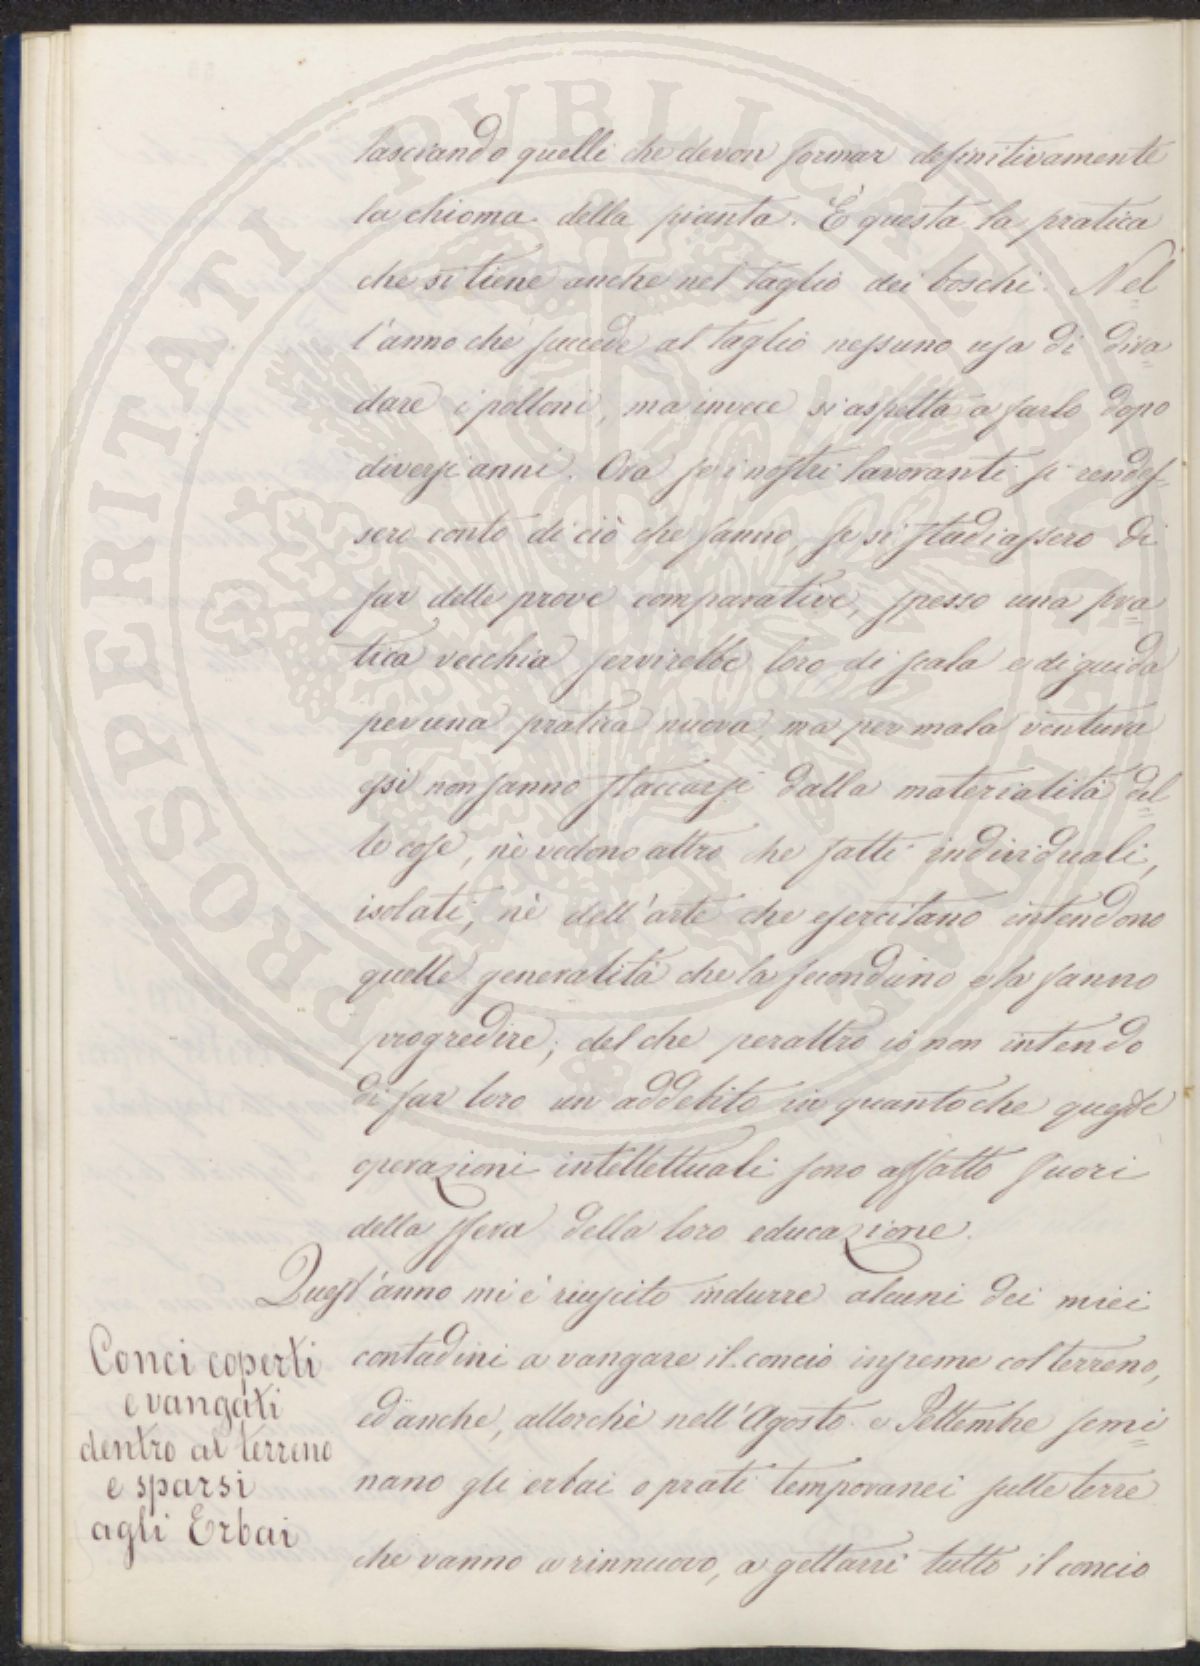 lasciando quelli che devon formar definitivamente
la chioma della pianta. È questa la pratica
che si tiene anche nel taglio dei boschi. Nel
l'anno che succede al taglio nessuno usa di dira
dare i polloni, ma invece si aspetta a farlo dopo
diversi anni. Ora se i nostri lavoranti si rendes-
sero conto di ciò che fanno, se si studiassero di
far delle prove comparative, spesso una pra
tica vecchia servirebbe loro di scala e di guida
per una pratica nuova, ma per mala ventura
essi non sanno staccarsi dalla materialità del
le cose, nè vedono altro che fatti individuali,
isolati, nè dell'arte che esercitano intendono
quelle generalità che la fecondano e la fanno
progredire; del che peraltro io non intendo
di far loro un addebito in quantoche queste
operazioni intellettuali sono affatto fuori
della sfera della loro educazione.
Quest'anno mi è riuscito indurre alcuni dei miei
contadini a vangare il concio insieme col terreno,
ed anche, allorchè nell'Agosto e Settembre semi
nano gli erbai o prati temporanei sulle terre
che vanno a rinnuovo, a gettarvi tutto il concio
Conci coperti
e vangati
dentro al terreno
e sparsi
agli Erbai
PROSPERITATI PUBLICAE